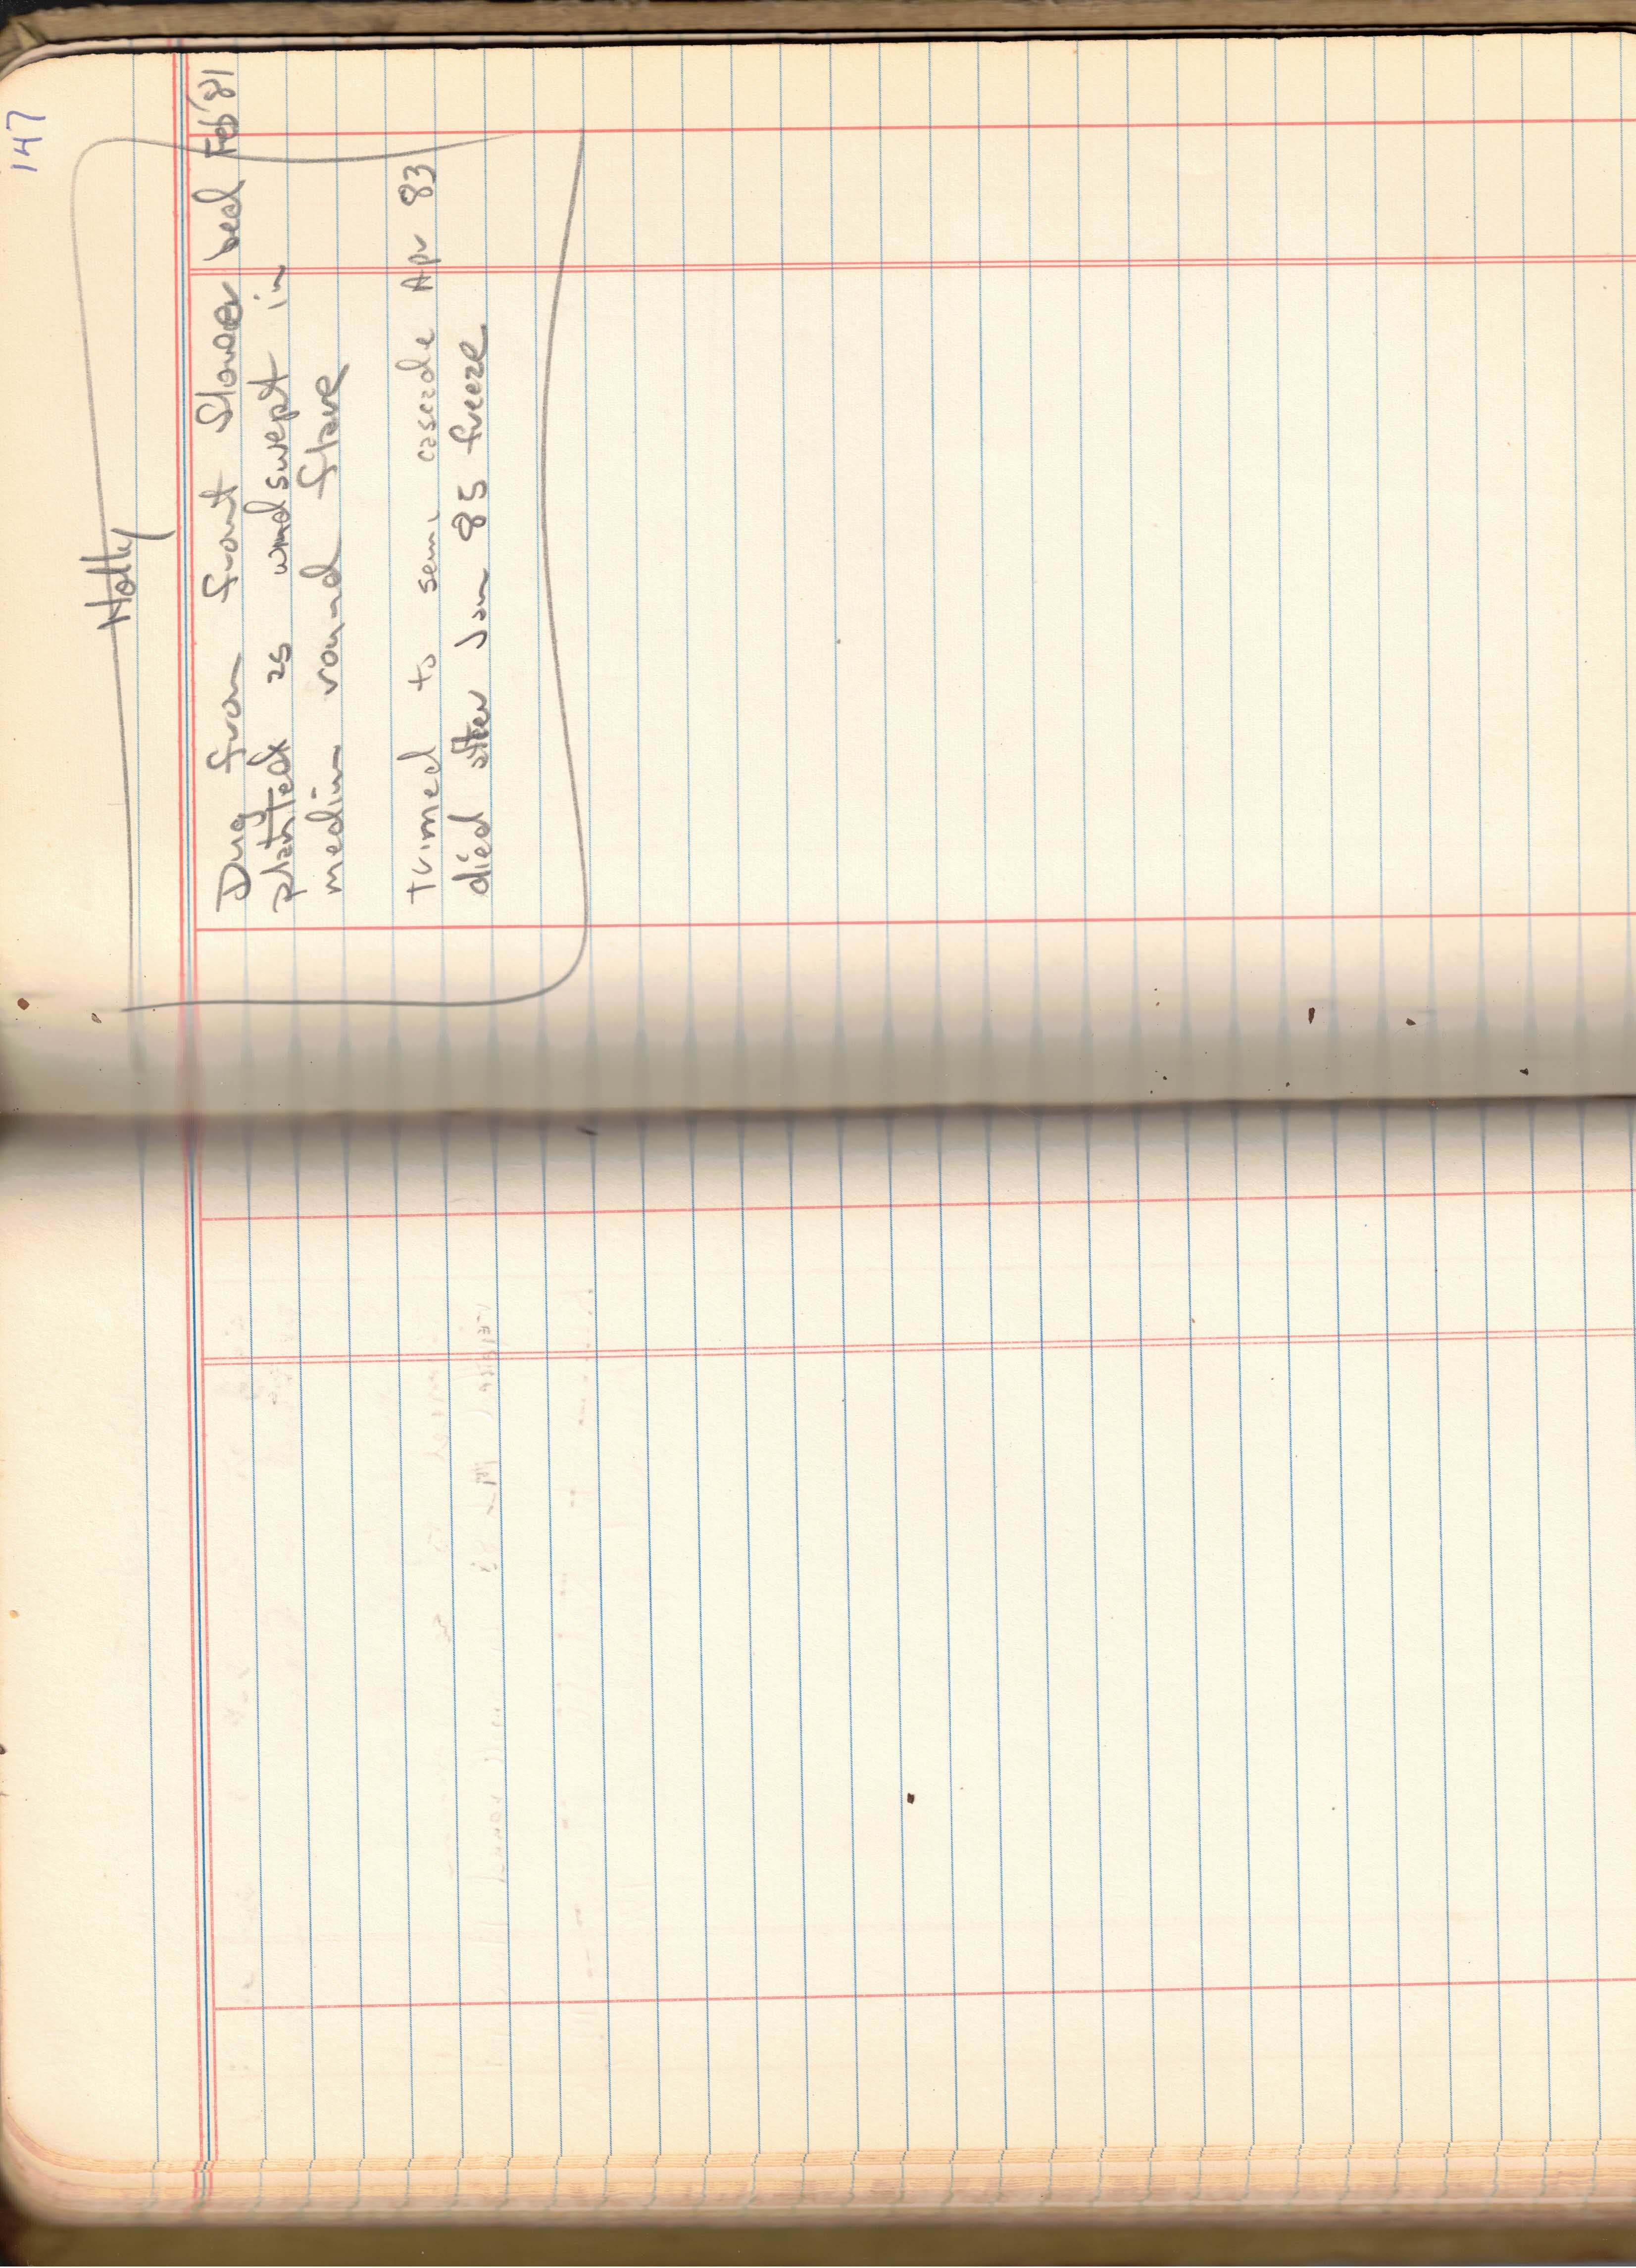 147
Holly
Dug from front flower bed Feb '81
planted as windswept in
medium round flare
trimed to semi cascade Apr 83
died after Jan 85 freeze